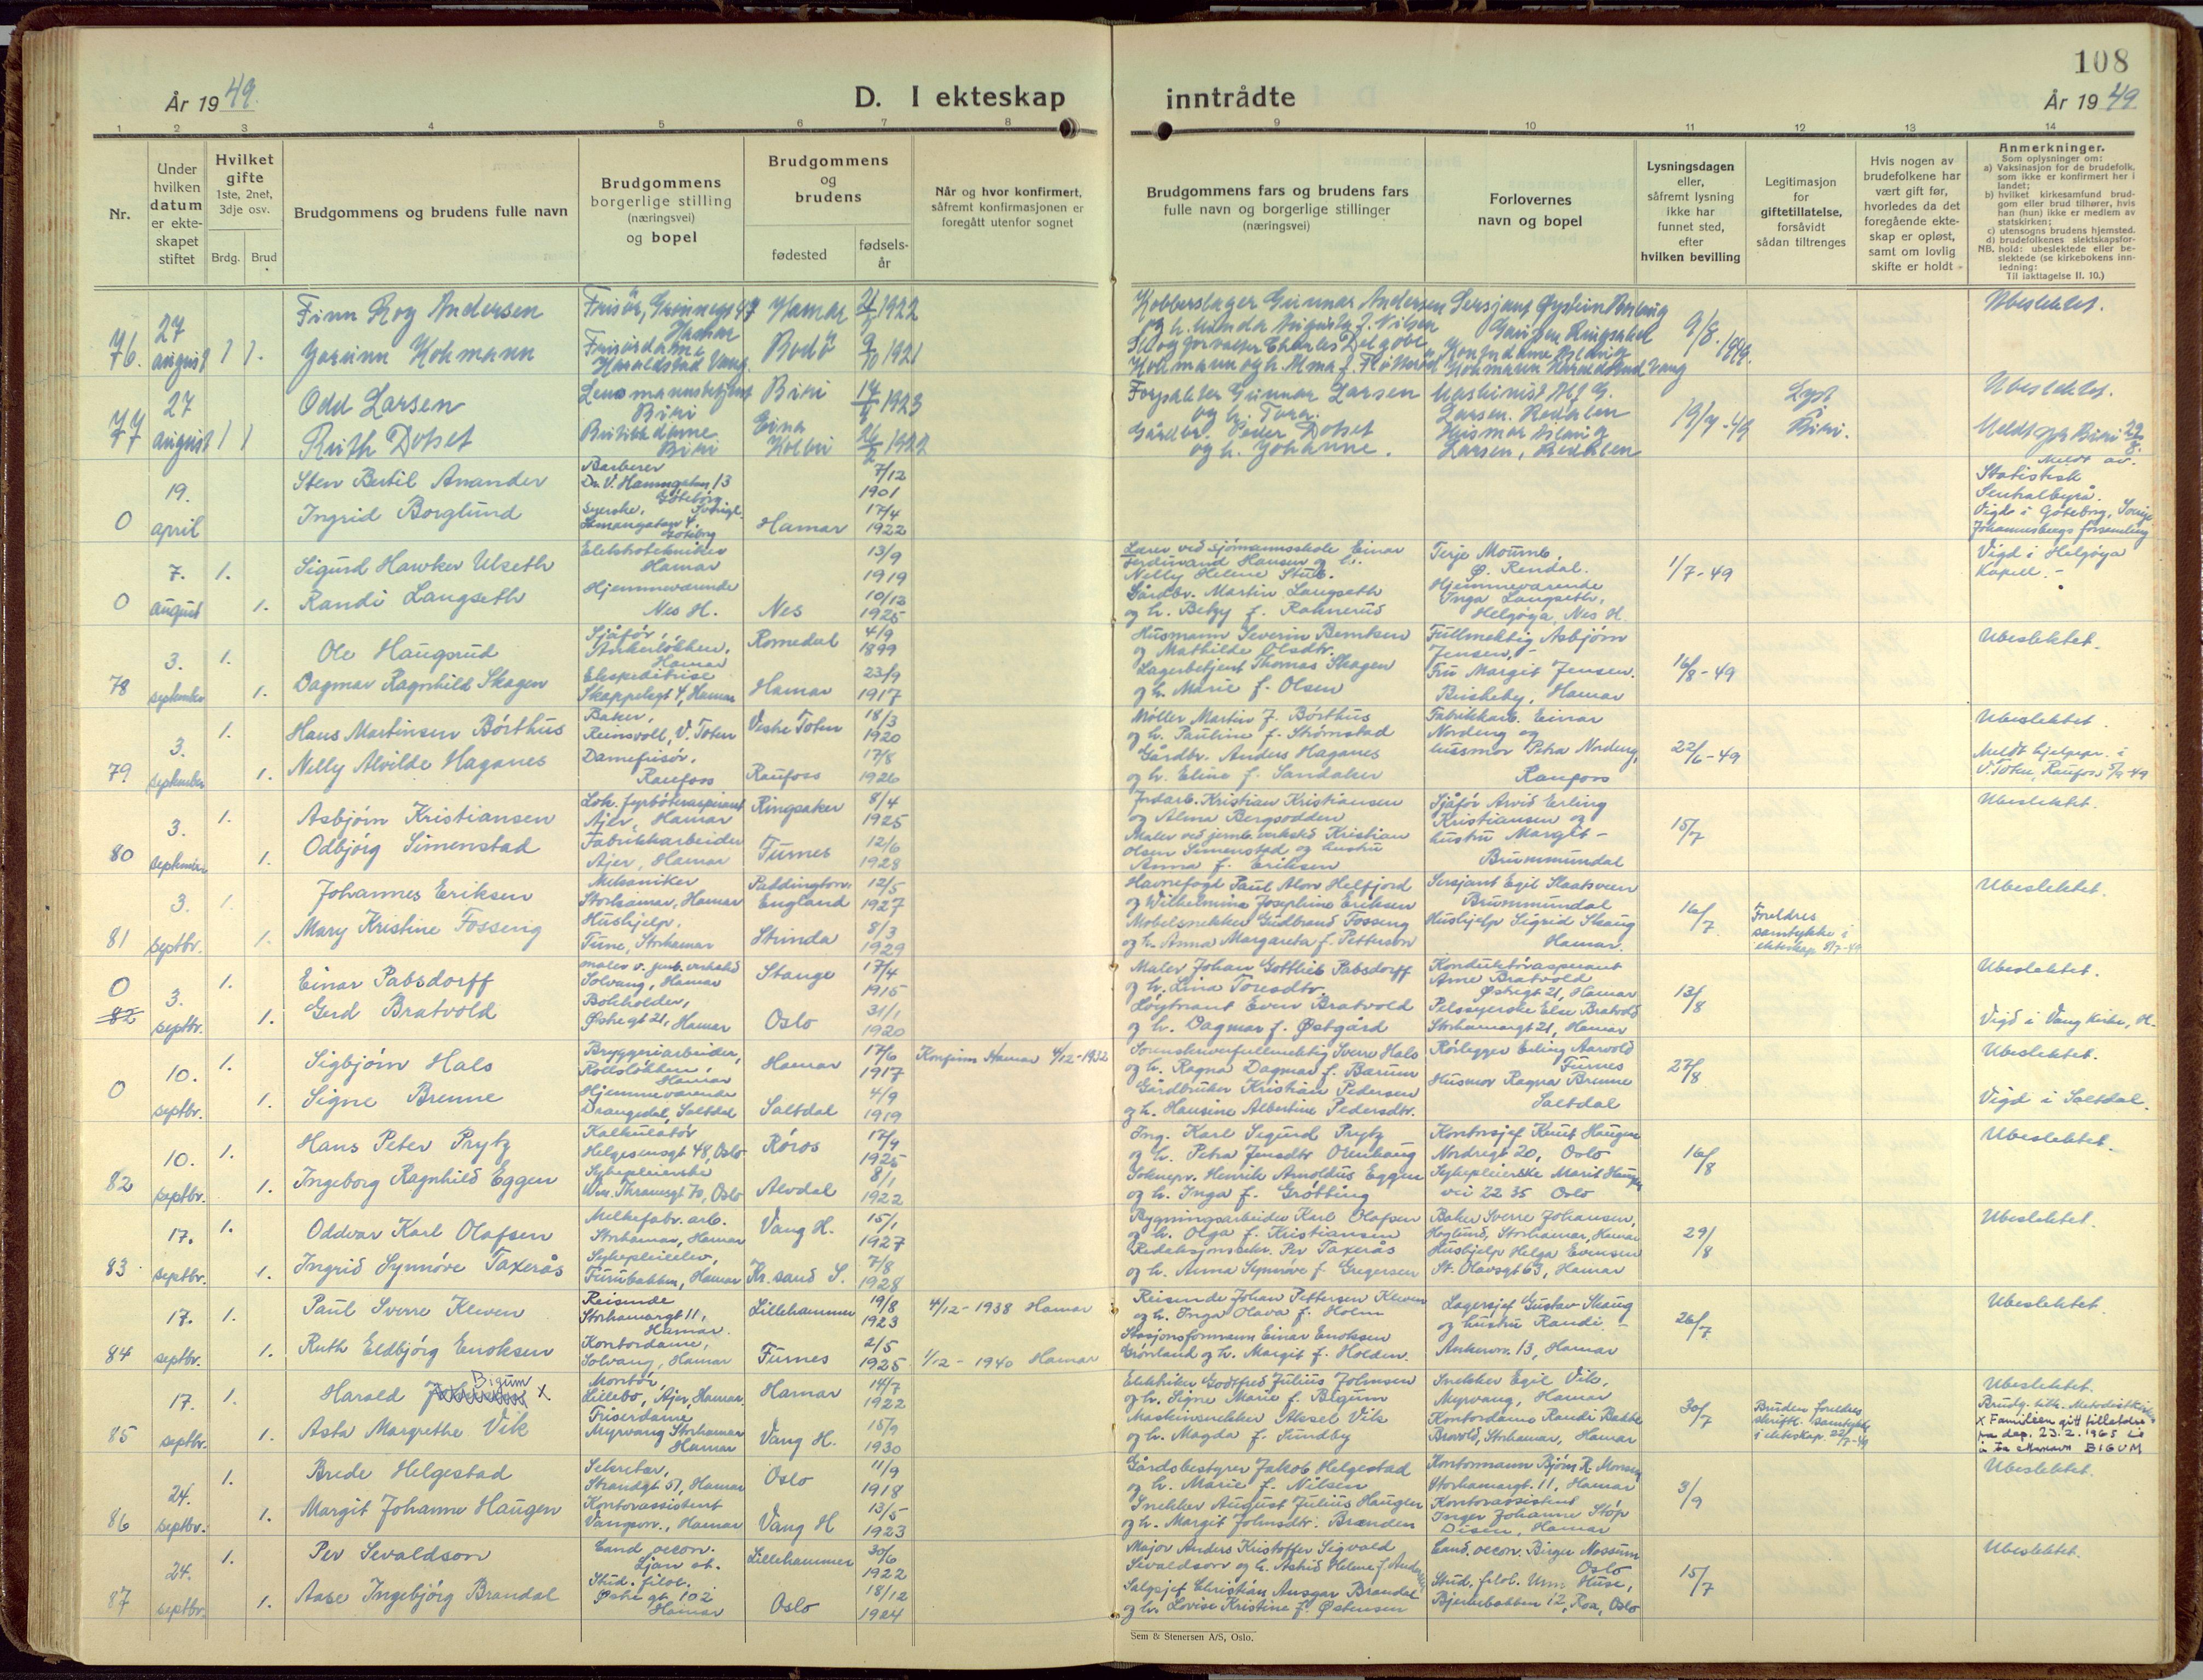 108
År 1949.
D. I ekteskap inntrådte
År 1949
1 2 3 4 5 6 7 8 9 10 11 12 13 14
Nr.
Under
hvilken
datum
er ekte-
skapet
stiftet
Hvilket
gifte
1ste, 2net,
3dje osv.
Brdg. Brud
Brudgommens og brudens fulle navn
Brudgommens
borgerlige stilling
(næringsvei)
og bopel
Brudgommens
og
brudens
fødested
fødsels-
år
Når og hvor konfirmert,
såfremt konfirmasjonen er
foregått utenfor sognet
Brudgommens fars og brudens fars
fulle navn og borgerlige stillinger
(næringsvei)
Forlovernes
navn og bopel
Lysningsdagen
eller,
såfremt lysning
ikke har
funnet sted,
efter
hvilken bevilling
Legitimasjon
for
giftetillatelse,
forsåvidt
sådan tiltrenges
Hvis nogen av
brudefolkene har
vært gift før,
hvorledes da det
foregående ekte-
skap er opløst,
samt om lovlig
skifte er holdt
Anmerkninger.
Som oplysninger om:
a) Vaksinasjon for de brudefolk,
som ikke er konfirmert her i
landet;
b) hvilket kirkesamfund brud-
gom eller brud tilhører, hvis
han (hun) ikke er medlem av
statskirken;
c) utensogns brudens hjemsted.
d) brudefolkenes slektskapsfor-
NB. hold: ubeslektede eller be-
slektede (se kirkebokens inn-
ledning:
Til iakttagelse II. 10.)
76. 27 august 1 1.
Finn Roy Andersen
Frisør, Grønnegt 47
Hamar
Hamar
2/5 1922
Kobberslager Gunnar Andersen
Sersjant Øystein
9/8. 1949.
Ubeslektet.
Hohmann
Frisørdame
Haraldstad Vang.
Bodö
9/10 1921
77 27 august 1 1
Odd Larsen
Lensmannsbetjent
Biri
Biri
14/6 1923
Gunnar Larsen
og h. Tora.
Maskinist
Larsen. Redalen
19/7-49
Lyst
i
Biri.
Ubeslektet.
Ruth Dotset
Butikkdame
Biri
Eina
Kolbu
26/2 1922
Gårdbr. Peder Dotset
og h. Johanne.
Husmor
Larsen, Redalen
Meldt spr Biri 29/8.
0 19. april
Sten Bertil Anander
Barberer
Dr. V. Hamngatan 13
Göteborg
7/12
1901
Meldt av.
Statistisk
Sentralbyrå.
Ingrid Borglund
Syerske,
Göteborg
Hamar
17/4
1922
Vigd i Göteborg,
Johannesbergs forsamling
0 7. august 1. 1.
Sigurd Hawker Ulseth
Elektrotekniker
Hamar
13/9
1919
Lærer ved sjømannsskole Einar
Ferdinand Hansen og h.
Nelly Helene Stub.
Terje Moumb,
Ø. Rendal.
1/7-49
Vigd i Helgøya
Kapell.
Randi Langseth
Hjemmeværende
Nes H.
Nes
10/12
1925
Gårdbr. Martin Langseth
og h. Betzy f. Rahnerud
Hjemmeværende
Inga Langseth,
Helgøya, Nes H.
78 3. september 1. 1.
Ole Haugsrud
Sjåfør,
Ankerløkken,
Hamar
Romedal
4/9
1899
Husmann Severin Berntsen
og Mathilde Olsdtr.
Fullmektig Asbjørn
Jensen,
16/8-49
Ubeslektet.
Dagmar Ragnhild Skagen
Ekspeditrise
Skappelsgt 4, Hamar
Hamar
23/9
1917
Lagerbetjent Thomas Skagen
og h. Marie f. Olsen
Fru Margit Jensen.
Briskeby, Hamar
79 3. september 1. 1.
Hans Martinsen Børthus
Baker,
Reinsvoll, V. Toten
Vestre Toten
18/3
1920
Møller Martin J. Børthus
og h. Pauline f. Strømstad
Fabrikkarb. Einar
Nordeng og
22/6-49
Ubeslektet.
Nelly Alvilde Haganes
Damefrisør,
Raufoss
Raufoss
17/8
1926
Gårdbr. Anders Haganes
og h. Eline f. Sandaker
husmor Petra Nordeng,
Raufoss
Meldt hjelpepr. i
V. Toten, Raufoss 5/9-49
80 3. september 1. 1.
Asbjørn Kristiansen
Lok. fyrbøteraspirant
Ajer, Hamar
Ringsaker
8/4
1925
Jordarb. Kristian Kristiansen
og Alma Bergsodden
Sjåfør Arvid Erling
Kristiansen og
15/7
Ubeslektet.
Odbjørg Simenstad
Fabrikkarbeider
Ajer, Hamar
Furnes
12/6
1928
Maler ved jernb. verksted Kristian
Olsen Simenstad og hustru
Anna f. Eriksen
hustru Margit -
Brummundal
81 3. septbr. 1. 1.
Johannes Eriksen
Mekaniker
Storhamar, Hamar
Paddington,
England
12/5
1927
Havnefogd Paul Alon Helfjord
og Wilhelmine Josephine Eriksen
Sersjant Egil Slaatsveen
Brummundal
16/7
Foreldres
samtykke i
ekteskap 8/7-49
Ubeslektet.
Mary Kristine Fosseng
Hushjelp,
Tune, Storhamar
Strinda
8/3
1929
Møbelsnekker Gudbrand Fosseng
og h. Anna Margareta f. Petterson
Hushjelp Sigrid Skaug
Hamar.
0 82 3. septbr. 1. 1.
Einar Pabsdorff
maler v. jernb. verksted
Solvang, Hamar
Stange
17/4
1915
Maler Johan Gottlieb Pabsdorff
og h. Lina Toresdtr.
Konduktøraspirant
Arne Bratvold
Østregt 21, Hamar
13/8
Ubeslektet.
Gerd Bratvold
Bokholder,
Østregt 21, Hamar
Oslo
31/1
1920
Løytnant Even Bratvold
og h. Dagmar f. Østgård
Pelssyerske Else Bratvold
Storhamargt 21, Hamar
Vigd i Vang Kirke, H.
0 10. septbr. 1. 1.
Sigbjørn Hals
Bryggeriarbeider,
Rollsløkken,
Hamar
Hamar
17/6
1917
Konfirm Hamar 4/12-1932
Sorenskriverfullmektig Sverre Hals
og h. Ragna Dagmar f. Bærum
Rørlegger Erling Aarvold
Furnes
27/8
Ubeslektet.
Signe Brenne
Hjemmeværende
Drangedal, Saltdal
Saltdal
4/9
1919
Gårdbruker Kristian Pedersen
og h. Hansine Albertine Pedersdtr.
Husmor Ragna Brenne
Saltdal
Vigd i Saltdal.
82 10. septbr. 1. 1.
Hans Peter Prytz
Kalkulatør
Helgesensgt 48, Oslo
Røros
17/4
1925
Ing. Karl Sigurd Prytz
og h. Petra Jensdtr Ormhaug
Kontorsjef Knut Haugen
Nordregt 20, Oslo
16/8
Ubeslektet.
Ingeborg Ragnhild Eggen
Sykepleierske
Wm. Thranesgt 70, Oslo
Alvdal
8/1
1922
Soknepr. Henrik Arnoldus Eggen
og h. Inga f. Grøtting
Sykepleierske Marit Haugen
vei 22 35 Oslo
83 17. septbr. 1. 1.
Oddvar Karl Olafsen
Melkefabr. arb.
Storhamar, Hamar
Vang H.
15/1
1927
Bygningsarbeider Karl Olafsen
og h. Olga f. Kristiansen
Baker Sverre Johansen,
Høglund, Storhamar, Hamar
29/8
Ubeslektet.
Ingrid Synnøve Taxerås
Sykepleieelev,
Furubakken, Hamar
Kr. sand S.
7/8
1928
Redaksjonssekr. Per Taxerås
og h. Anna Synnøve f. Gregersen
Hushjelp Helga Evensen
St. Olavsgt 63, Hamar
84 17. septbr. 1. 1.
Paul Sverre Kleven
Reisende
Storhamargt 11,
Hamar.
Lillehammer
19/8
1923
4/12-1938 Hamar
Reisende Johan Pettersen Kleven
og h. Inga Olava f. Holm
Lagersjef Gustav Skaug
og hustru Randi. -
26/7
Ubeslektet.
Ruth Eldbjørg Enoksen
Kontordame,
Solvang, Hamar
Furnes
2/5
1925
1/12-1940 Hamar
Stasjonsformann Einar Enoksen
Grønland og h. Margit f. Holden.
Ankerv. 13, Hamar
85 17. septbr. 1. 1.
Harald Bigum x
Montør,
Lillebo, Ajer, Hamar.
Hamar
14/7
1922
Elektriker Godtfred Julius Johnsen
og h. Signe Marie f. Bigum
Snekker Egil Vik,
Myrvang, Hamar
30/7
Brudens foreldres
skriftl. samtykke
i ekteskap 22/7-49
Ubeslektet.
Brudg. tilh. Metodistkirken
x Familien gitt tillatelse
fra dep. 23.2.1965 til
å ta etternavn BIGUM
Asta Margrethe Vik
Friserdame
Myrvang Storhamar
Hamar
Vang H.
15/9
1930
Maskinsnekker Aksel Vik
og h. Magda f. Sundby
Kontordame Randi Bakke
Brovold, Storhamar, Hamar
86 24. septbr. 1. 1.
Brede Helgestad
Sekretær,
Strandgt 51, Hamar
Oslo
11/9
1918
Gårdsbestyrer Jakob Helgestad
og h. Marie f. Nilsen
Kontormann Bjørn R. Monsen
Storhamargt. 11, Hamar
3/9
Ubeslektet.
Margit Johanne Haugen
Kontorassistent
Vangsv., Hamar
Vang H
13/5
1923
Snekker August Julius Haugen
og h. Margit Johnsdtr. Brænden
Kontorassistent
Inger Johanne Støp
Disen, Hamar
87 24. septbr. 1. 1.
Per Sevaldson
Cand. oecon.
Ljan st.
Lillehammer
30/6
1922
Major Anders Kristoffer Sigvald
Sevaldson og h. Astrid Helene f. Andersen
Cand. oecon. Birger Mossum
Oslo
15/7
Ubeslektet.
Aase Ingebjørg Brandal
Stud. filol.
Østre gt. 102
Hamar
Oslo
18/12
1924
Salgsjef Christian Ansgar Brandal
og h. Lovise Kristine f. Østensen
Stud. filol. Unni Huse,
Bjerkebakken 12, Roa, Oslo
Sem & Stenersen A/S, Oslo.